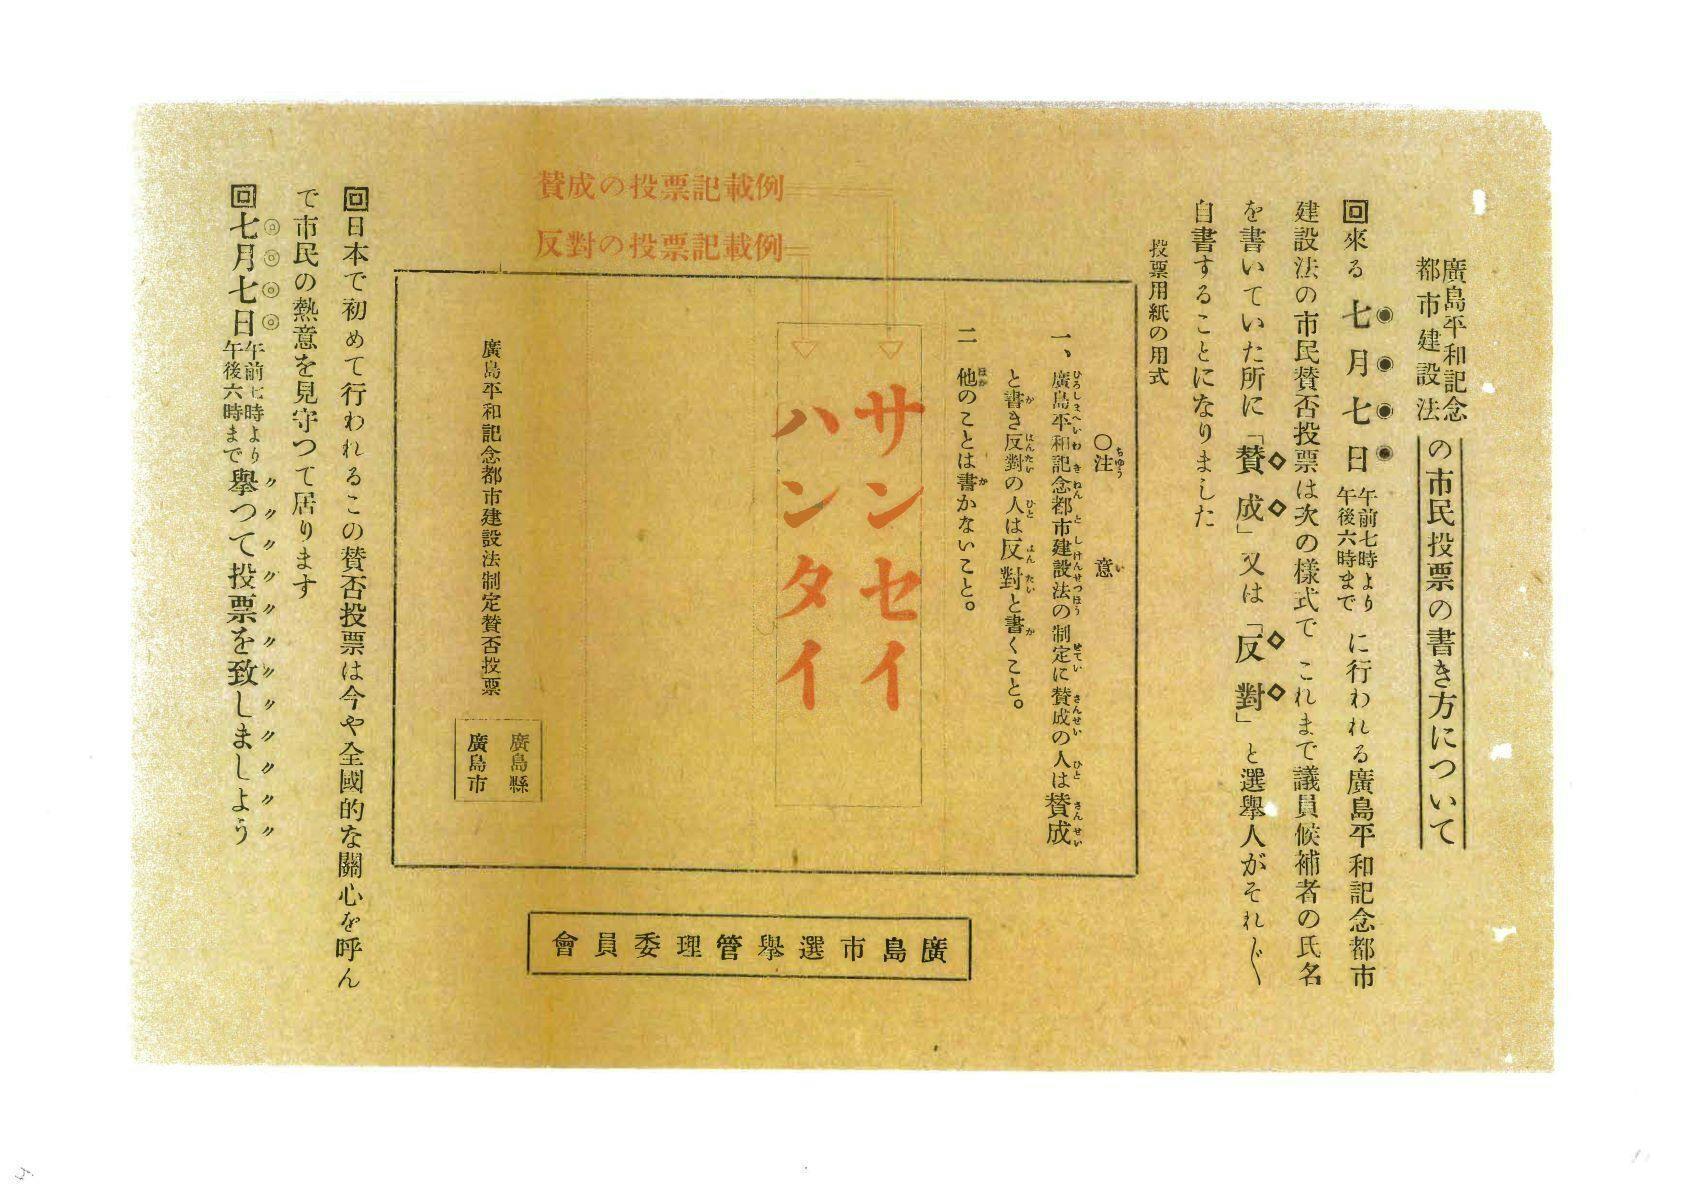 廣島平和記念都市建設法の市民投票の書き方について
回來る七月七日午前七時より午後六時までに行われる廣島平和記念都市
建設法の市民賛否投票は次の様式でこれまで議員候補者の氏名
を書いていた所に「賛成」又は「反對」と選擧人がそれ〴〵
自書することになりました
投票用紙の用式
賛成の投票記載例
反對の投票記載例
〇注意
一、廣島平和記念都市建設法の制定に賛成の人は賛成
と書き反對の人は反對と書くこと。
二 他のことは書かないこと。
サンセイ
ハンタイ
廣島平和記念都市建設法制定賛否投票
廣島縣
廣島市
廣島市選擧管理委員會
回日本で初めて行われるこの賛否投票は今や全國的な關心を呼ん
で市民の熱意を見守つて居ります
回七月七日午前七時より午後六時まで擧つて投票を致しましよう